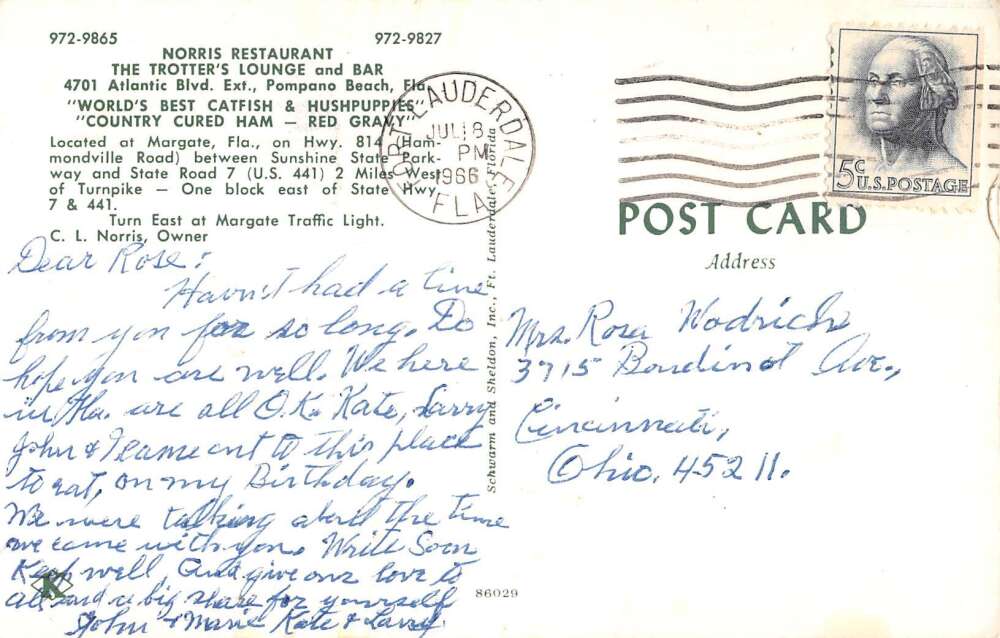 972-9865 972-9827
NORRIS RESTAURANT
THE TROTTER'S LOUNGE and BAR
4701 Atlantic Blvd. Ext., Pompano Beach, Fla.
"WORLD'S BEST CATFISH & HUSHPUPPIES"
"COUNTRY CURED HAM — RED GRAVY"
Located at Margate, Fla., on Hwy. 814 (Ham-
mondville Road) between Sunshine State Park-
way and State Road 7 (U.S. 441) 2 Miles West
of Turnpike — One block east of State Hwy.
7 & 441.
Turn East at Margate Traffic Light.
C. L. Norris, Owner
Dear Rose:
Havn't had a line
from you for so long. Do
hope you are well. We here
in Fla. are all O.K. Kate, Larry
John & I came out to this place
to eat, on my Birthday.
We were talking about the time
we came with you. Write Soon
Keep well, and give our love to
all and a big share for yourself
John & Marie Kate & Larry.
K
Schwarm and Sheldon, Inc., Ft. Lauderdale, Florida
86029
FORT LAUDERDALE
JUL 18
PM
1966
FLA
5¢ U.S. POSTAGE
POST CARD
Address
Mrs. Rosa Wodrich
3715 Boudinot Ave.,
Cincinnati,
Ohio. 45211.